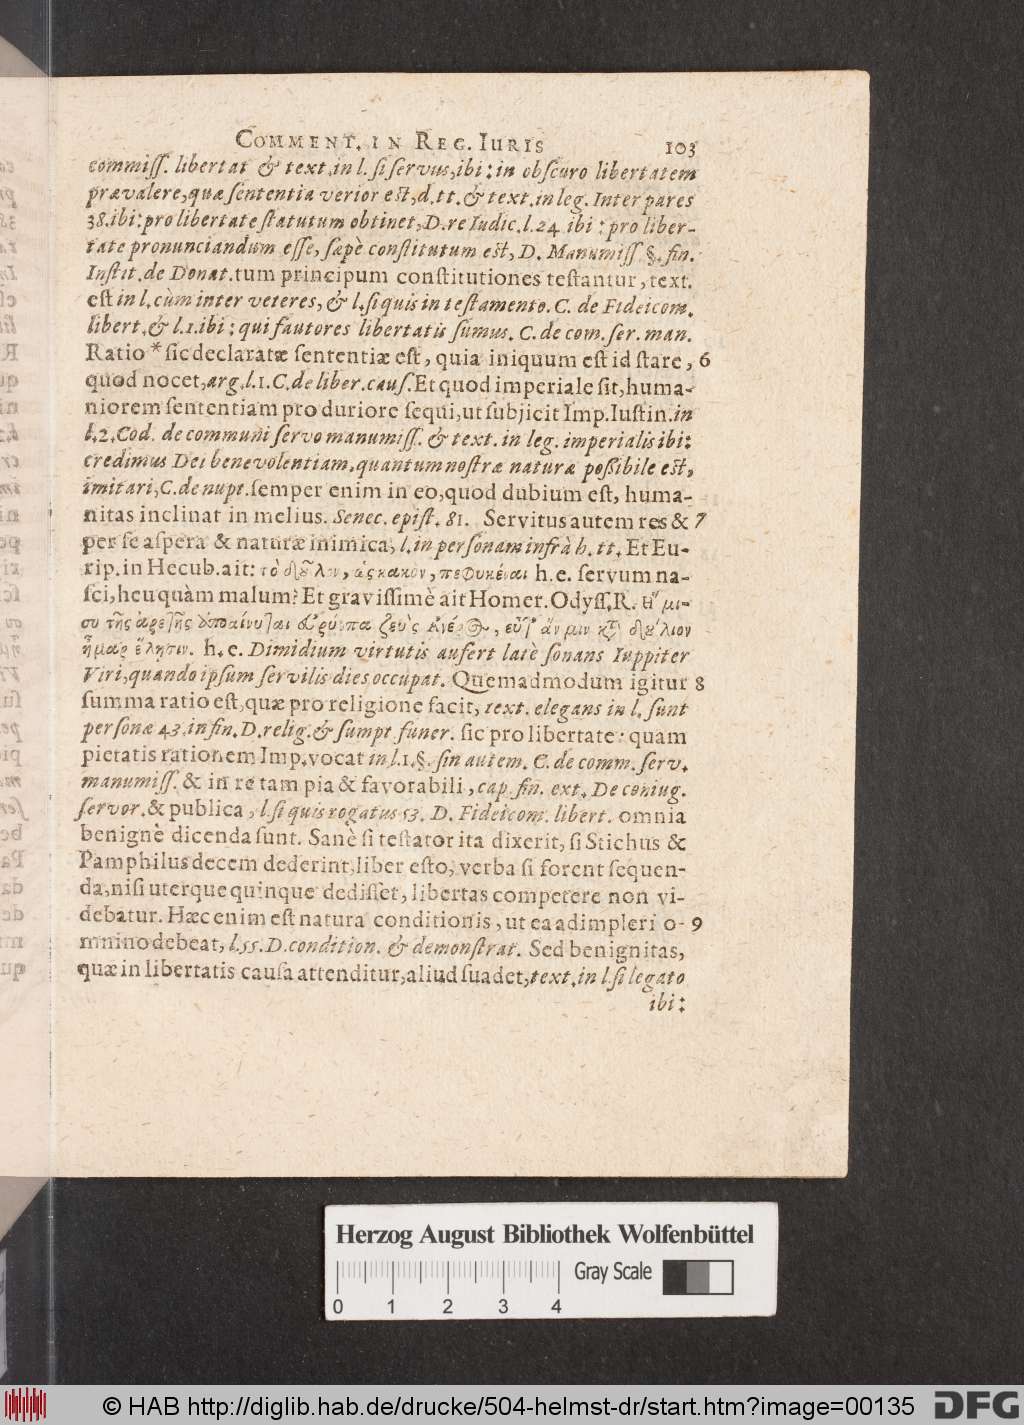 COMMENT. IN REG. IURIS 103
commiss. libertat & text. in l. si servus, ibi: in obscuro libertatem
prævalere, quæ sententia verior est, d. tt. & text. in leg. Inter pares
38. ibi: pro libertate statutum obtinet, D. re Iudic. l. 24 ibi: pro liber-
tate pronunciandum esse, sæpè constitutum est, D. Manumiss §. fin.
Instit. de Donat. tum principum constitutiones testantur, text.
est in l. cùm inter veteres, & l. si quis in testamento. C. de Fideicom.
libert. & l. 1. ibi: qui fautores libertatis sumus. C. de com. ser. man.
Ratio * sic declaratæ sententiæ est, quia iniquum est id stare, 6
quod nocet, arg. l. 1. C. de liber. caus. Et quod imperiale sit, huma-
niorem sententiam pro duriore sequi, ut subjicit Imp. Iustin. in
l. 2. Cod. de communi servo manumiss. & text. in leg. imperialis ibi:
credimus Dei benevolentiam, quantum nostræ naturæ possibile est,
imitari, C. de nupt. semper enim in eo, quod dubium est, huma-
nitas inclinat in melius. Senec. epist. 81. Servitus autem res & 7
per se aspera & naturæ inimica, l. in personam infrà h. tt. Et Eu-
rip. in Hecub. ait: τὸ δοῦλον, ὡς κακὸν, πεφυκέναι h. e. servum na-
sci, heu quàm malum? Et gravissimè ait Homer. Odyss. R. ἥμι-
συ τῆς ἀρετῆς ἀποαίνυται εὐρύοπα ζεὺς ἀνέρος, εὖτ' ἄν μιν κτ δούλιον
ἦμαρ ἕλησιν. h. e. Dimidium virtutis aufert latè sonans Iuppiter
Viri, quando ipsum servilis dies occupat. Quemadmodum igitur 8
summa ratio est, quæ pro religione facit, text. elegans in l. sunt
personæ 43. in fin. D. relig. & sumpt funer. sic pro libertate: quam
pietatis rationem Imp. vocat in l. 1. §. sin autem. C. de comm. serv.
manumiss. & in re tam pia & favorabili, cap. fin. ext. De coniug.
servor. & publica, l. si quis rogatus 53. D. Fideicom. libert. omnia
benignè dicenda sunt. Sanè si testator ita dixerit, si Stichus &
Pamphilus decem dederint, liber esto, verba si forent sequen-
da, nisi uterque quinque dedisset, libertas competere non vi-
debatur. Hæc enim est natura conditionis, ut ea adimpleri o- 9
mnino debeat, l. 55. D. condition. & demonstrat. Sed benignitas,
quæ in libertatis causa attenditur, aliud suadet, text. in l. si legato
ibi:
Herzog August Bibliothek Wolfenbüttel
Gray Scale
0 1 2 3 4
© HAB http://diglib.hab.de/drucke/504-helmst-dr/start.htm?image=00135
DFG